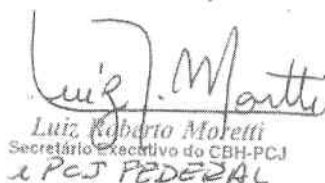 Luiz J. Moretti
Luiz Roberto Moretti
Secretário Executivo do CBH-PCJ
e PCJ FEDERAL